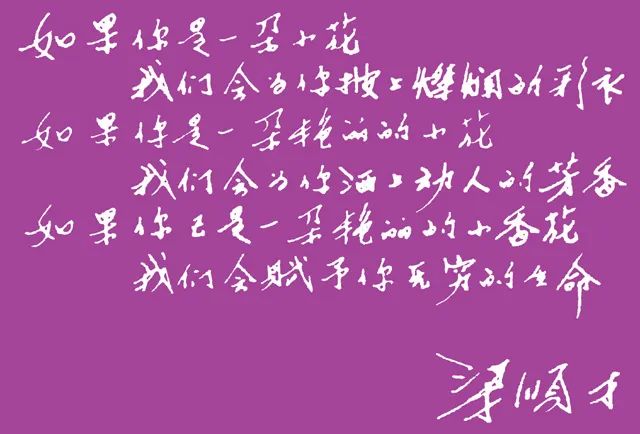 如果你是一朵小花
我们会为你披上灿烂的彩衣
如果你是一朵艳丽的小花
我们会为你洒上动人的芳香
如果你已是一朵艳丽的小香花
我们会赋予你无穷的生命
梁顺才